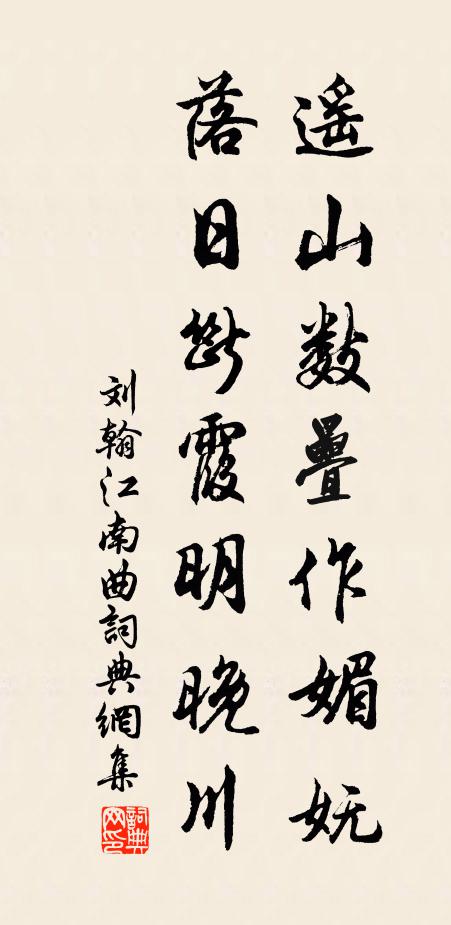 遥山数疊作媚妩
落日断霞明晚川
刘翰江南曲詞典網集
詞典网印